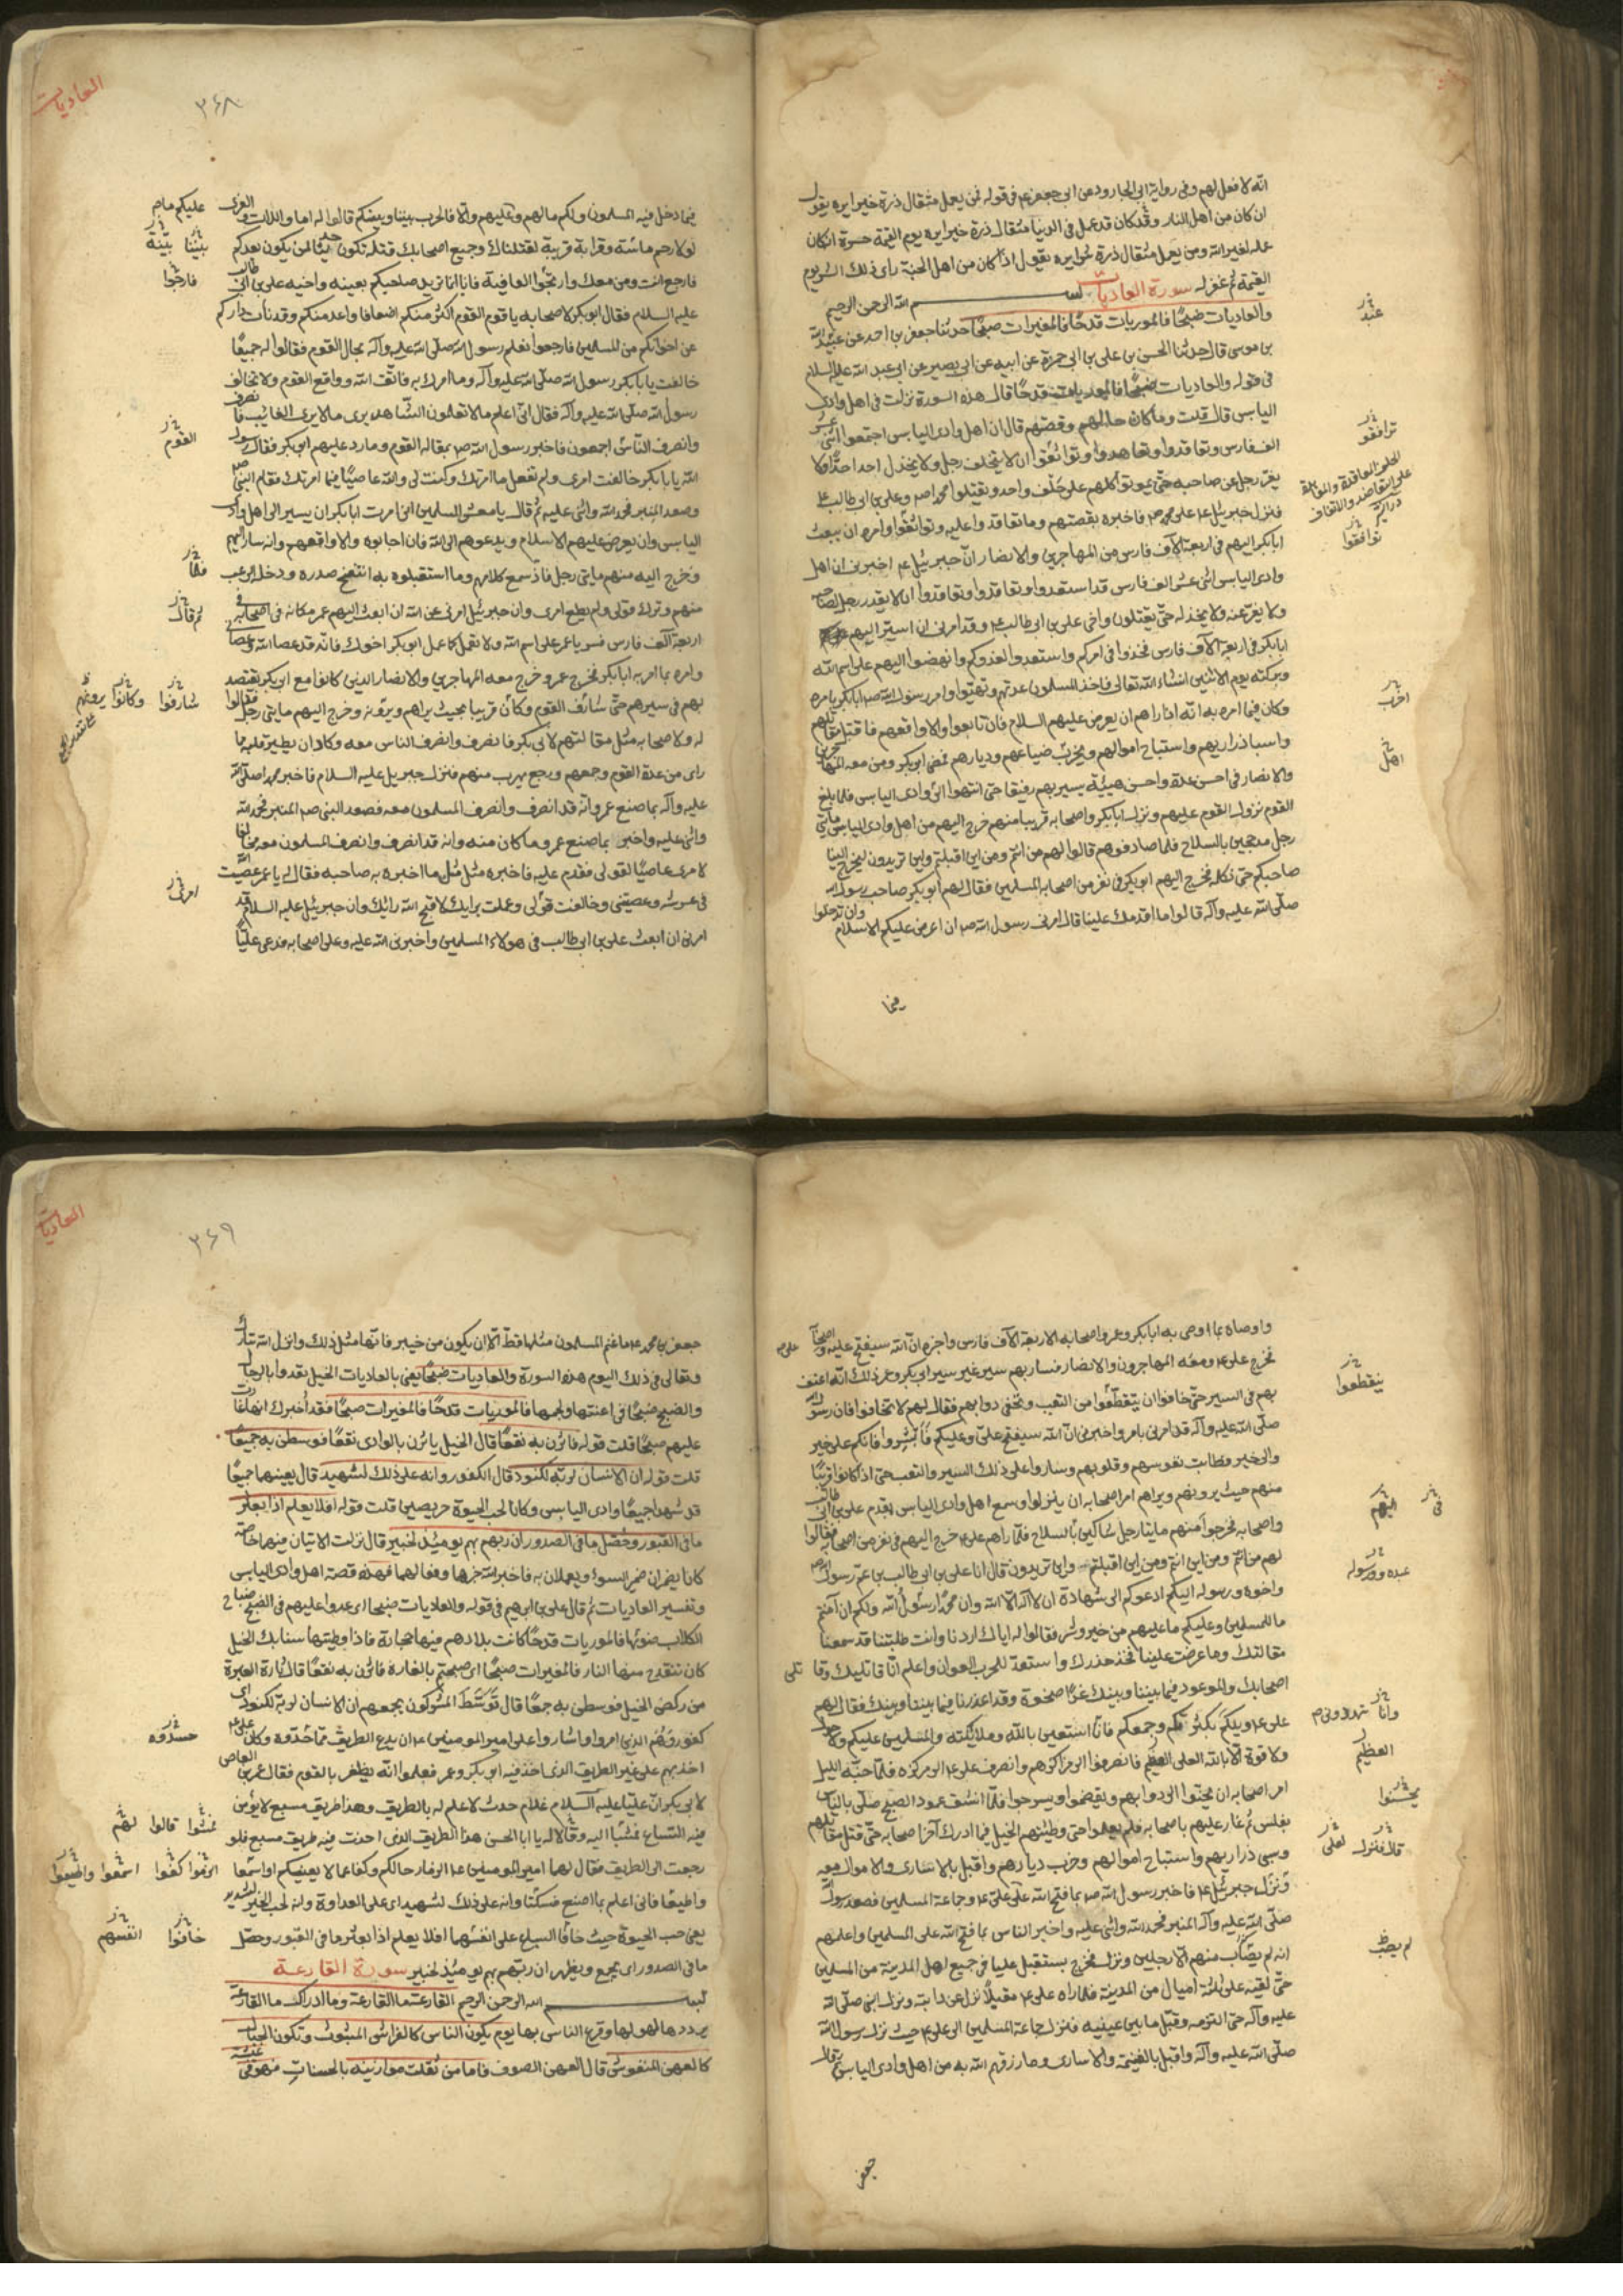 انه لا فعل لهم وفى رواية ابى الجارود عن ابى جعفر ع فى قوله فمن يعمل مثقال ذرة خيرا يره يقول
ان كان من اهل النار وقد كان قد عمل فى الدنيا مثقال ذرة خيرا يره يوم القيمة حسرة ان كان
عمله لغير الله ومن يعمل مثقال ذرة شرا يره يقول اذا كان من اهل الجنة راى ذلك الشر يوم
القيمة ثم غفر له سورة العاديات بسم الله الرحمن الرحيم
والعاديات ضبحًا فالموريات قدحًا فالمغيرات صبحًا حدثنا جعفر بن احمد عن عبيد الله
عبد
بن موسى قال حدثنا الحسن بن على بن ابى حمزة عن ابيه عن ابى بصير عن ابى عبد الله عليه السلام
فى قوله والعاديات ضبحًا فالموريات قدحًا قال هذه السورة نزلت فى اهل وادى
اليابس قال قلت وما كان حالهم وقصتهم قال ان اهل وادى اليابس اجتمعوا اثنى عشر
الف فارس وتعاقدوا وتعاهدوا وتواثقوا ان لا يتخلف رجل ولا يخذل احد احدًا ولا
ترافقو
يفر رجل عن صاحبه حتى يموتوا كلهم على حلف واحد ويقتلوا محمدا ص وعلى بن ابى طالب ع
فنزل جبرئيل ع على محمد ص فاخبره بقصتهم وما تعاقدوا عليه وتواثقوا وامره ان يبعث
توافقوا
ابا بكر اليهم فى اربعة آلاف فارس من المهاجرين والانصار ان جبرئيل ع اخبرنى ان اهل
وادى اليابس اثنى عشر الف فارس قد استعدوا وتعاقدوا وتعاهدوا ان لا يغدر رجل لصاحبه
ولا يفر عنه ولا يخذله حتى يقتلون واخى على بن ابى طالب ع وقد امرنى ان اسير اليهم
ابا بكر فى اربعة آلاف فارس فخذوا فى امركم واستعدوا لعدوكم وانهضوا اليهم على اسم الله
وبركته يوم الاثنين انشاء الله تعالى فاخذ المسلمون عدتهم وتهيئوا وامر رسول الله ص ابا بكر بامره
وكان فيما امره به انه اذا راهم ان يعرض عليهم السلام فان تابعوا والا واقعهم فاقتل مقاتلهم
واسبا ذراريهم واستباح اموالهم ويخرب ضياعهم وديارهم فمضى ابو بكر ومن معه من المهاجرين
اخرب
والانصار فى احسن عدة واحسن هيئة يسير بهم رفيقا حتى انتهوا الى وادى اليابس فلما بلغ
اهل
القوم نزول القوم عليهم ونزل ابا بكر واصحابه قريبا منهم خرج اليهم من اهل وادى اليابس مأتى
رجل مدججين بالسلاح فلما صادفوهم قالوا لهم من انتم ومن اين اقبلتم واين تريدون ليخرج الينا
صاحبكم حتى نكلمه فخرج اليهم ابو بكر فى نفر من اصحابه المسلمين فقال لهم ابو بكر صاحب رسول الله
صلى الله عليه وآله قالوا ما اقدمك علينا قال امرنى رسول الله ص ان اعرض عليكم الاسلام وان تدخلوا
فيما
العاديات
٣٦٨
فيما دخل فيه المسلمون ولكم مالهم وعليهم والا فالحرب بيننا وبينكم قالوا له اما واللات والعزى
عليكم ما م
لولا رحم ماسّة وقرابة قريبة لقتلناك وجميع اصحابك قتلة تكون حديثا لمن يكون بعدكم
بيننا بيّنة
فارجع انت ومن معك وارتجوا العافية فانا انما نريد صاحبكم بعينه واخيه على بن ابى طالب
فارجوا
عليه السلام فقال ابو بكر لاصحابه يا قوم القوم اكثر منكم اضعافا واعد منكم وقد نأت داركم
عن اخوانكم من المسلمين فارجعوا نعلم رسول الله صلى الله عليه وآله بحال القوم فقالوا له جميعًا
خالفت يا بابكر رسول الله صلى الله عليه وآله وما امرك به فاتق الله وواقع القوم ولا تخالف
رسول الله صلى الله عليه وآله فقال انى اعلم ما لا تعلمون الشاهد يرى ما لا يرى الغايب فانصرف
وانصرف الناس اجمعون فاخبر رسول الله ص بمقالة القوم وما رد عليهم ابو بكر فقال رسول
القوم
الله يا بابكر خالفت امرى ولم تفعل ما امرتك وكنت لى والله عاصيًا فيما امرتك فقام النبى ص
وصعد المنبر فحمد الله واثنى عليه ثم قال يا معشر المسلمين انى امرت ابا بكر ان يسير الى اهل وادى
اليابس وان يعرض عليهم الاسلام ويدعوهم الى الله فان اجابوه والا واقعهم وانه سار اليهم
وخرج اليه منهم مايتى رجل فاذ سمع كلامهم وما استقبلوه به انتفخ صدره ودخله الرعب
فلما
منهم وترك قولى ولم يطع امرى وان جبرئيل امرنى عن الله ان ابعث اليهم عمر مكانه فى اصحابه فى
ثم قال
اربعة آلف فارس فسر يا عمر على اسم الله ولا تعمل كما عمل ابو بكر اخوك فانه قد عصا الله وعصانى
وامره بما امر به ابا بكر فخرج عمر وخرج معه المهاجرين والانصار الذين كانوا مع ابى بكر يقتصد
بهم فى سيرهم حتى شارف القوم وكان قريبا بحيث يراهم ويرونه وخرج اليهم مايتى رجل فقالوا
شارفوا وكانوا يرونهم
له ولاصحابه مثل مقالتهم لابى بكر فانصرف وانصرف الناس معه وكاد ان يطير قلبه مما
راى من عدة القوم وجمعهم ورجع يهرب منهم فنزل جبريل عليه السلام فاخبر محمدا صلى الله
عليه وآله بما صنع عمر وانه قد انصرف وانصرف المسلمون معه فصعد النبى ص المنبر فحمد الله
واثنى عليه واخبر بما صنع عمر وما كان منه وانه قد انصرف وانصرف المسلمون معه مخالفا
لامرى عاصيًا لقولى فقدم عليه فاخبره مثل مثل ما اخبره به صاحبه فقال له يا عمر عصيت الله
فى عرشه وعصيتنى وخالفت قولى وعملت برايك لا قبح الله رايك وان جبرئيل عليه السلام قد
امرنى
امرنى ان ابعث على بن ابى طالب فى هولاء المسلمين واخبرنى الله عليه وعلى اصحابه فدعى عليًا
واوصاه بما اوصى به ابا بكر وعمر واصحابه الاربعة آلاف فارس واخبره ان الله سيفتح عليه واصحابه
فخرج على ع ومعه المهاجرون والانصار فسار بهم سير غير سير ابى بكر وعمر ذلك انه اعنف
بهم فى السير حتى خافوا ان يتقطعوا من التعب وتحفى دوابهم فقال لهم لا تخافوا فان رسول الله
ينقطعوا
صلى الله عليه وآله قد امرنى بامر واخبرنى ان الله سيفتح على وعليكم فابشروا فانكم على خير
والى خير وطابت نفوسهم وقلوبهم وساروا على ذلك السير والتعب حتى اذ كانوا قريبًا
منهم حيث يرونهم ويراهم امر اصحابه ان ينزلوا وسمع اهل وادى اليابس بقدم على بن ابى طالب
فى اليهم
واصحابه فخرجوا منهم مايتا رجل شاكين بالسلاح فلما راهم على ع خرج اليهم فى نفر من اصحابه فقالوا
لهم من انتم ومن اين انتم ومن اين اقبلتم واين تريدون قال انا على بن ابى طالب بن عم رسول الله
واخوه ورسوله اليكم ادعوكم الى شهادة ان لا اله الا الله وان محمدا رسول الله ولكم ان آمنتم
عبده ورسوله
ما للمسلمين وعليكم ما عليهم من خير وشر فقالوا له اياك اردنا وانت طلبتنا قد سمعنا
مقالتك وما عرضت علينا فخذ حذرك واستعد للحرب العوان واعلم انا قاتليك وقاتلى
اصحابك والموعود فيما بيننا وبينك غدًا ضحوة وقد اعذرنا فيما بيننا وبينك فقال لهم
على ع ويلكم بكثرتكم وجمعكم فانا استعين بالله وملائكته والمسلمين عليكم ولا حول
ولا قوة الا بالله العلى العظيم فانصرفوا الى مراكزهم وانصرف على ع الى مركزه فلما جنه الليل
العظيم
امر اصحابه ان يحسنوا الى دوابهم ويقضموا ويسرجوا فلما انشق عمود الصبح صلى بالناس
يحسنوا
بغلس ثم غار عليهم باصحابه فلم يعلموا حتى وطئتهم الخيل فيما ادرك آخر اصحابه حتى قتل مقاتلهم
وسبى ذراريهم واستباح اموالهم وخرب ديارهم واقبل بالاسارى والاموال معه
قال فنزل
ونزل جبرئيل ع فاخبر رسول الله ص بما فتح الله على على ع وجماعة المسلمين فصعد رسول الله
صلى الله عليه وآله المنبر فحمد الله واثنى عليه واخبر الناس بما فتح الله على المسلمين واعلمهم
انه لم يصاب منهم الا رجلين ونزل فخرج يستقبل عليا فى جميع اهل المدينة من المسلمين
لم يصب
حتى لقيه على ثلثة اميال من المدينة فلما راه على ع مقبلًا نزل عن دابته ونزل النبى صلى الله
عليه وآله حتى التزمه وقبل ما بين عينيه فنزل جماعة المسلمين الى على ع حيث نزل رسول الله
صلى الله عليه وآله واقبل بالغنيمة والاسارى وما رزقهم الله به من اهل وادى اليابس ثم قال
جعفر
العاديات
٣٦٩
جعفر بن محمد ع ما غنم المسلمون مثلها قط الا ان يكون من خيبر فانها مثل ذلك وانزل الله تبارك
وتعالى فى ذلك اليوم هذه السورة والعاديات ضبحًا يعنى بالعاديات الخيل تعدوا بالرجال
والضبح ضبحًا فى اعنتها ولجمها فالموريات قدحًا فالمغيرات صبحًا فقد أخبرك انها غارت
عليهم صبحًا قلت قوله فاثرن به نقعًا قال الخيل ياثرن بالوادى نقعًا فوسطن به جمعًا
قلت قوله ان الانسان لربه لكنود قال الكفور وانه على ذلك لشهيد قال يعينهما جميعًا
قد شهدا جميعًا وادى اليابس وكانا لحب الحيوة حريصين قلت قوله افلا يعلم اذا بعثر
ما فى القبور وحصل ما فى الصدور ان ربهم بهم يومئذ لخبير قال نزلت الآيتان فيهما خاصة
كانا يضمران ضمير السوء ويعملان به فاخبر الله خبرهما وفعالهما فهذه قصة اهل وادى اليابس
وتفسير العاديات ثم قال على بن ابرهيم فى قوله والعاديات ضبحا اى عدوا عليهم فى الضبح ضباح
الكلاب صوتها فالموريات قدحًا كانت بلادهم فيها حجارة فاذا وطيتها سنابك الخيل
كان تنقدح منها النار فالمغيرات صبحًا اى صبحتهم بالغارة فاثرن به نقعًا قال ثارة الغبرة
من ركض الخيل فوسطن به جمعًا قال توسّط المشركون بجمعهم ان الانسان لربه لكنود اى
كفور وهم الذين امروا واشاروا على امير المومنين ع ان يدع الطريق مما حسدوه وكان على ع
حسدوه
اخذ بهم على غير الطريق الذى اخذ فيه ابو بكر وعمر فعلموا انه يظفر بالقوم فقال عمر بن العاص
لابى بكر ان عليًا عليه السلام غلام حدث لا علم له بالطريق وهذا طريق مسبع لا يؤمن
فيه السباع فمشيا اليه وقالا له يا ابا الحسن هذا الطريق الذى اخذت فيه طريق مسبع فلو
فمشوا قالوا لهم
رجعت الى الطريق فقال لهما امير المومنين ع الزما رحالكم وكفا عما لا يعنيكم واسمعا
الزموا كفوا اسمعوا واطيعوا
واطيعا فانى اعلم بما اصنع فسكتا وانه على ذلك لشهيد اى على العداوة وانه لحب الخير لشديد
يعنى حب الحيوة حيث خافا السباع على انفسهما افلا يعلم اذا بعثر ما فى القبور وحصل
خافوا انفسهم
ما فى الصدور اى يجمع ويظهر ان ربهم بهم يومئذ لخبير سورة القارعة
بسم الله الرحمن الرحيم القارعة ما القارعة وما ادراك ما القارعة
يرددها لهولها وفزع الناس بها يوم يكون الناس كالفراش المبثوث وتكون الجبال
كالعهن المنفوش قال العهن الصوف فاما من ثقلت موازينه بالحسنات فهو فى عيشة